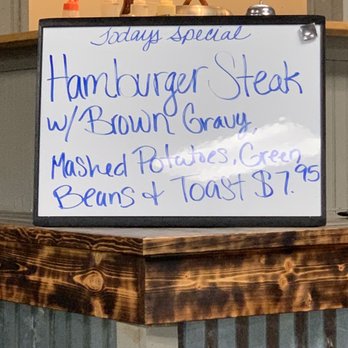 Todays Special
Hamburger Steak
w/ Brown Gravy,
Mashed Potatoes, Green
Beans & Toast $7.95